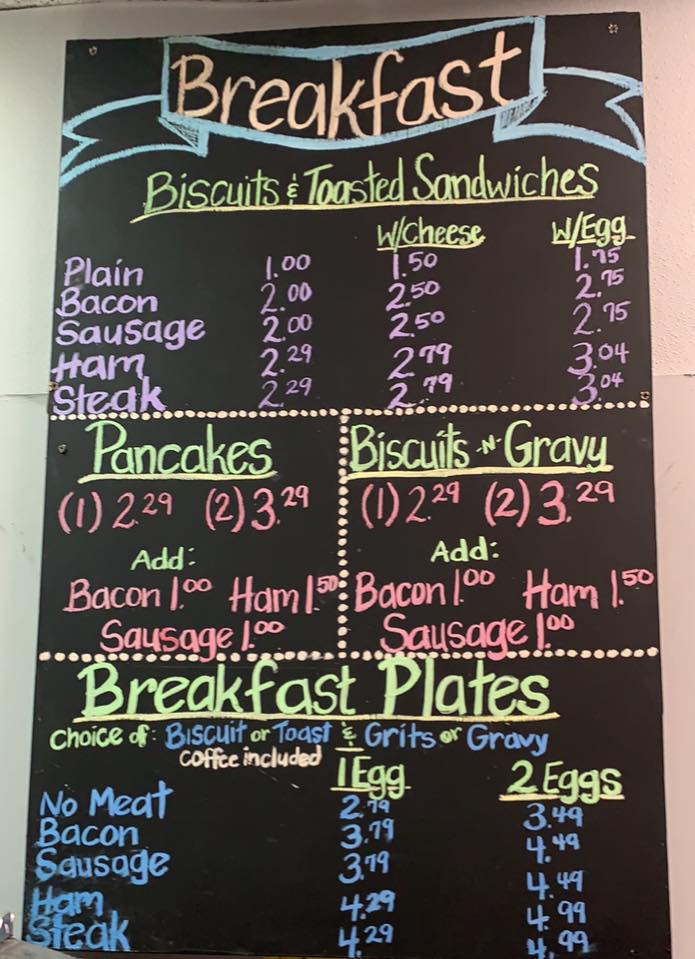 Breakfast
Biscuits & Toasted Sandwiches
W/Cheese W/Egg
Plain 1.00 1.50 1.75
Bacon 2.00 2.50 2.75
Sausage 2.00 2.50 2.75
Ham 2.29 2.79 3.04
Steak 2.29 2.79 3.04
Pancakes
(1) 2.29 (2) 3.29
Add:
Bacon 1.00 Ham 1.50
Sausage 1.00
Biscuits -N- Gravy
(1) 2.29 (2) 3.29
Add:
Bacon 1.00 Ham 1.50
Sausage 1.00
Breakfast Plates
Choice of: Biscuit or Toast & Grits or Gravy
coffee included
1 Egg 2 Eggs
No Meat 2.79 3.49
Bacon 3.79 4.49
Sausage 3.79 4.49
Ham 4.29 4.99
Steak 4.29 4.99